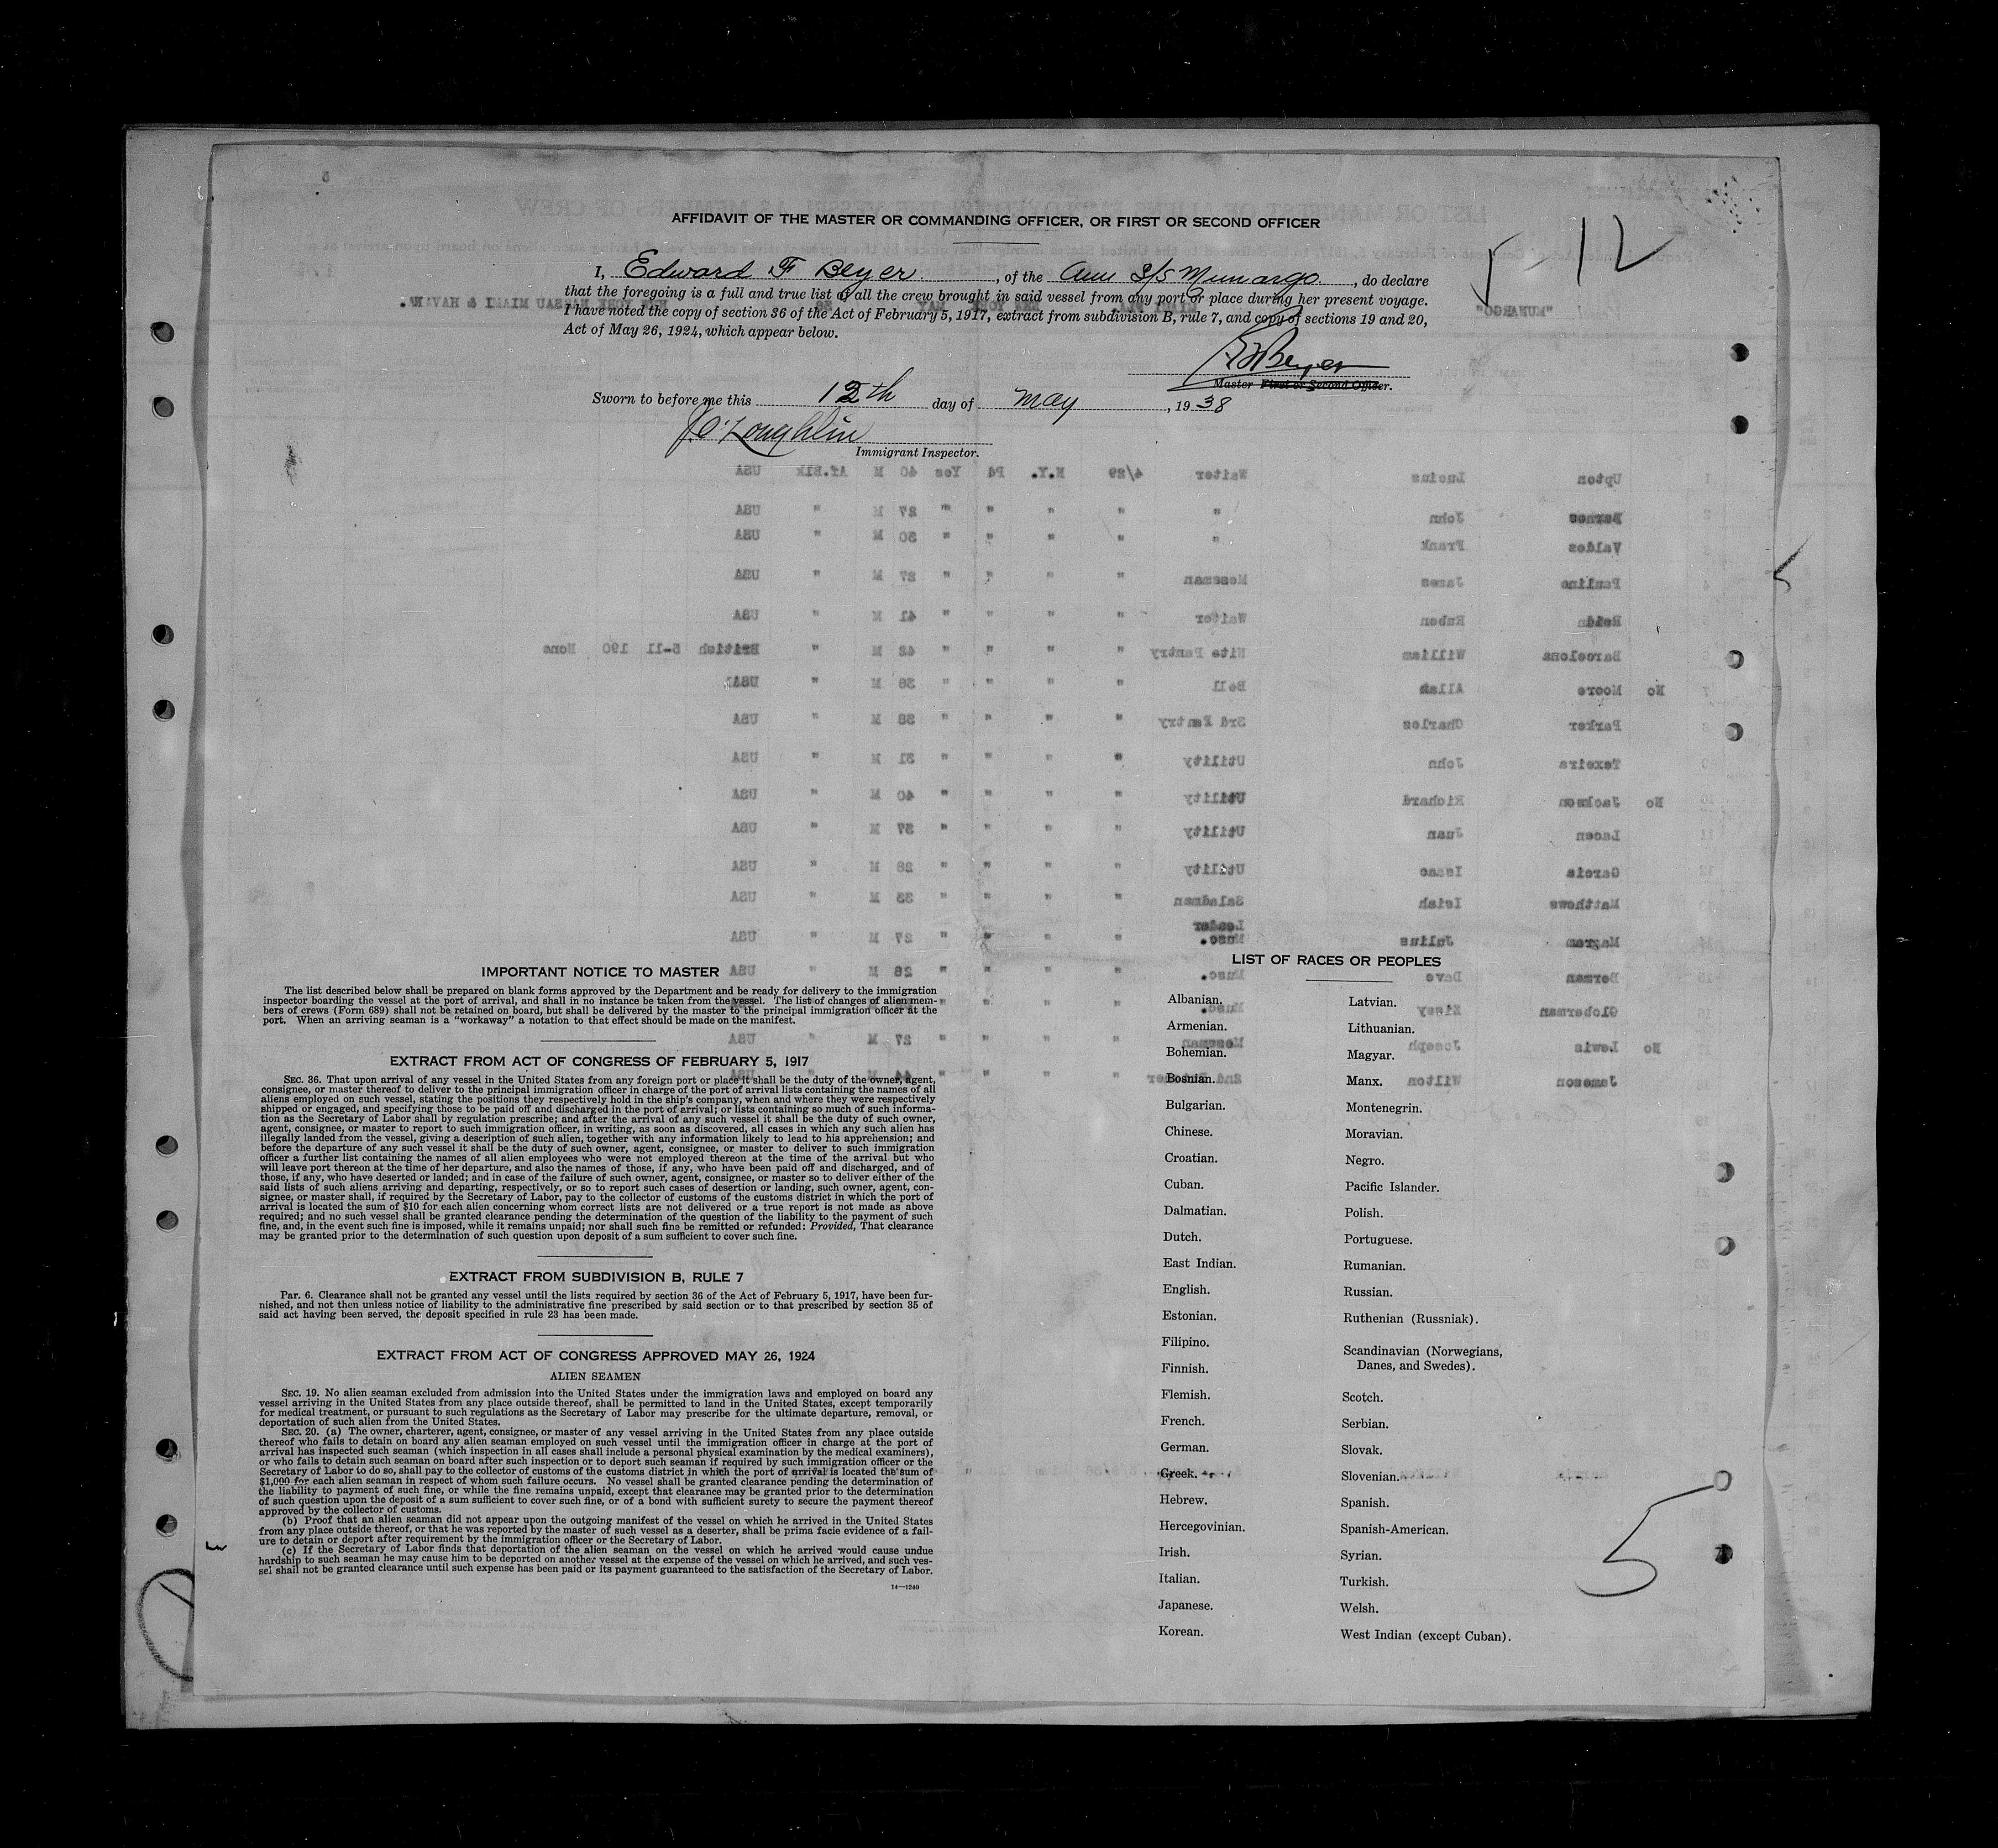 AFFIDAVIT OF THE MASTER OR COMMANDING OFFICER, OR FIRST OR SECOND OFFICER
I, Edward F Beyer, of the Am S/S Munargo, do declare
that the foregoing is a full and true list of all the crew brought in said vessel from any port or place during her present voyage.
I have noted the copy of section 36 of the Act of February 5, 1917, extract from subdivision B, rule 7, and copy of sections 19 and 20,
Act of May 26, 1924, which appear below.
5-12
Master First or Second Officer.
Sworn to before me this 12th day of May, 1938
Immigrant Inspector.
IMPORTANT NOTICE TO MASTER
The list described below shall be prepared on blank forms approved by the Department and be ready for delivery to the immigration
inspector boarding the vessel at the port of arrival, and shall in no instance be taken from the vessel. The list of changes of alien mem-
bers of crews (Form 689) shall not be retained on board, but shall be delivered by the master to the principal immigration officer at the
port. When an arriving seaman is a "workaway" a notation to that effect should be made on the manifest.
EXTRACT FROM ACT OF CONGRESS OF FEBRUARY 5, 1917
SEC. 36. That upon arrival of any vessel in the United States from any foreign port or place it shall be the duty of the owner, agent,
consignee, or master thereof to deliver to the principal immigration officer in charge of the port of arrival lists containing the names of all
aliens employed on such vessel, stating the positions they respectively hold in the ship's company, when and where they were respectively
shipped or engaged, and specifying those to be paid off and discharged in the port of arrival; or lists containing so much of such informa-
tion as the Secretary of Labor shall by regulation prescribe; and after the arrival of any such vessel it shall be the duty of such owner,
agent, consignee, or master to report to such immigration officer, in writing, as soon as discovered, all cases in which any such alien has
illegally landed from the vessel, giving a description of such alien, together with any information likely to lead to his apprehension; and
before the departure of any such vessel it shall be the duty of such owner, agent, consignee, or master to deliver to such immigration
officer a further list containing the names of all alien employees who were not employed thereon at the time of the arrival but who
will leave port thereon at the time of her departure, and also the names of those, if any, who have been paid off and discharged, and of
those, if any, who have deserted or landed; and in case of the failure of such owner, agent, consignee, or master so to deliver either of the
said lists of such aliens arriving and departing, respectively, or so to report such cases of desertion or landing, such owner, agent, con-
signee, or master shall, if required by the Secretary of Labor, pay to the collector of customs of the customs district in which the port of
arrival is located the sum of $10 for each alien concerning whom correct lists are not delivered or a true report is not made as above
required; and no such vessel shall be granted clearance pending the determination of the question of the liability to the payment of such
fine, and, in the event such fine is imposed, while it remains unpaid; nor shall such fine be remitted or refunded: Provided, That clearance
may be granted prior to the determination of such question upon deposit of a sum sufficient to cover such fine.
EXTRACT FROM SUBDIVISION B, RULE 7
Par. 6. Clearance shall not be granted any vessel until the lists required by section 36 of the Act of February 5, 1917, have been fur-
nished, and not then unless notice of liability to the administrative fine prescribed by said section or to that prescribed by section 35 of
said act having been served, the deposit specified in rule 23 has been made.
EXTRACT FROM ACT OF CONGRESS APPROVED MAY 26, 1924
ALIEN SEAMEN
SEC. 19. No alien seaman excluded from admission into the United States under the immigration laws and employed on board any
vessel arriving in the United States from any place outside thereof, shall be permitted to land in the United States, except temporarily
for medical treatment, or pursuant to such regulations as the Secretary of Labor may prescribe for the ultimate departure, removal, or
deportation of such alien from the United States.
SEC. 20. (a) The owner, charterer, agent, consignee, or master of any vessel arriving in the United States from any place outside
thereof who fails to detain on board any alien seaman employed on such vessel until the immigration officer in charge at the port of
arrival has inspected such seaman (which inspection in all cases shall include a personal physical examination by the medical examiners),
or who fails to detain such seaman on board after such inspection or to deport such seaman if required by such immigration officer or the
Secretary of Labor to do so, shall pay to the collector of customs of the customs district in which the port of arrival is located the sum of
$1,000 for each alien seaman in respect of whom such failure occurs. No vessel shall be granted clearance pending the determination of
the liability to payment of such fine, or while the fine remains unpaid, except that clearance may be granted prior to the determination
of such question upon the deposit of a sum sufficient to cover such fine, or of a bond with sufficient surety to secure the payment thereof
approved by the collector of customs.
(b) Proof that an alien seaman did not appear upon the outgoing manifest of the vessel on which he arrived in the United States
from any place outside thereof, or that he was reported by the master of such vessel as a deserter, shall be prima facie evidence of a fail-
ure to detain or deport after requirement by the immigration officer or the Secretary of Labor.
(c) If the Secretary of Labor finds that deportation of the alien seaman on the vessel on which he arrived would cause undue
hardship to such seaman he may cause him to be deported on another vessel at the expense of the vessel on which he arrived, and such ves-
sel shall not be granted clearance until such expense has been paid or its payment guaranteed to the satisfaction of the Secretary of Labor.
14—1240
LIST OF RACES OR PEOPLES
Albanian.
Armenian.
Bohemian.
Bosnian.
Bulgarian.
Chinese.
Croatian.
Cuban.
Dalmatian.
Dutch.
East Indian.
English.
Estonian.
Filipino.
Finnish.
Flemish.
French.
German.
Greek.
Hebrew.
Hercegovinian.
Irish.
Italian.
Japanese.
Korean.
Latvian.
Lithuanian.
Magyar.
Manx.
Montenegrin.
Moravian.
Negro.
Pacific Islander.
Polish.
Portuguese.
Rumanian.
Russian.
Ruthenian (Russniak).
Scandinavian (Norwegians,
Danes, and Swedes).
Scotch.
Serbian.
Slovak.
Slovenian.
Spanish.
Spanish-American.
Syrian.
Turkish.
Welsh.
West Indian (except Cuban).
5